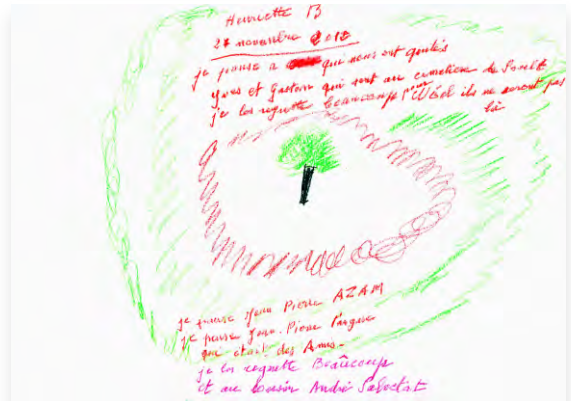 Henriette B
27 novembre 2012
je pense a qui nous ont quittés
Yves et Gaston qui sont au cimetiere de
je les regrette beaucoup pour Noël ils ne seront pas
là
je pense Jean Pierre AZAM
je pense Jean-Pierre
qui était des Amis.
je les regrette Beaûcoup
et au cousin André